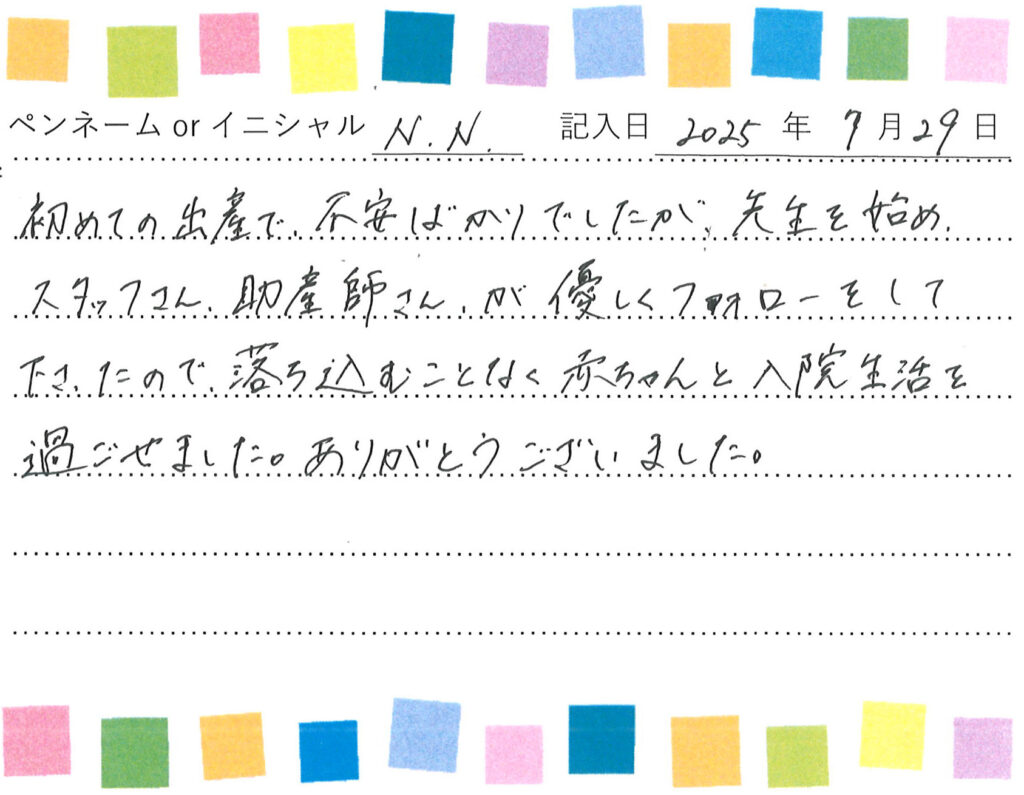 ペンネーム or イニシャル N.N. 記入日 2025 年 7 月 29 日
初めての出産で、不安ばかりでしたが、先生を始め、
スタッフさん、助産師さん、が優しくフォローをして
下さったので、落ち込むことなく赤ちゃんと入院生活を
過ごせました。ありがとうございました。